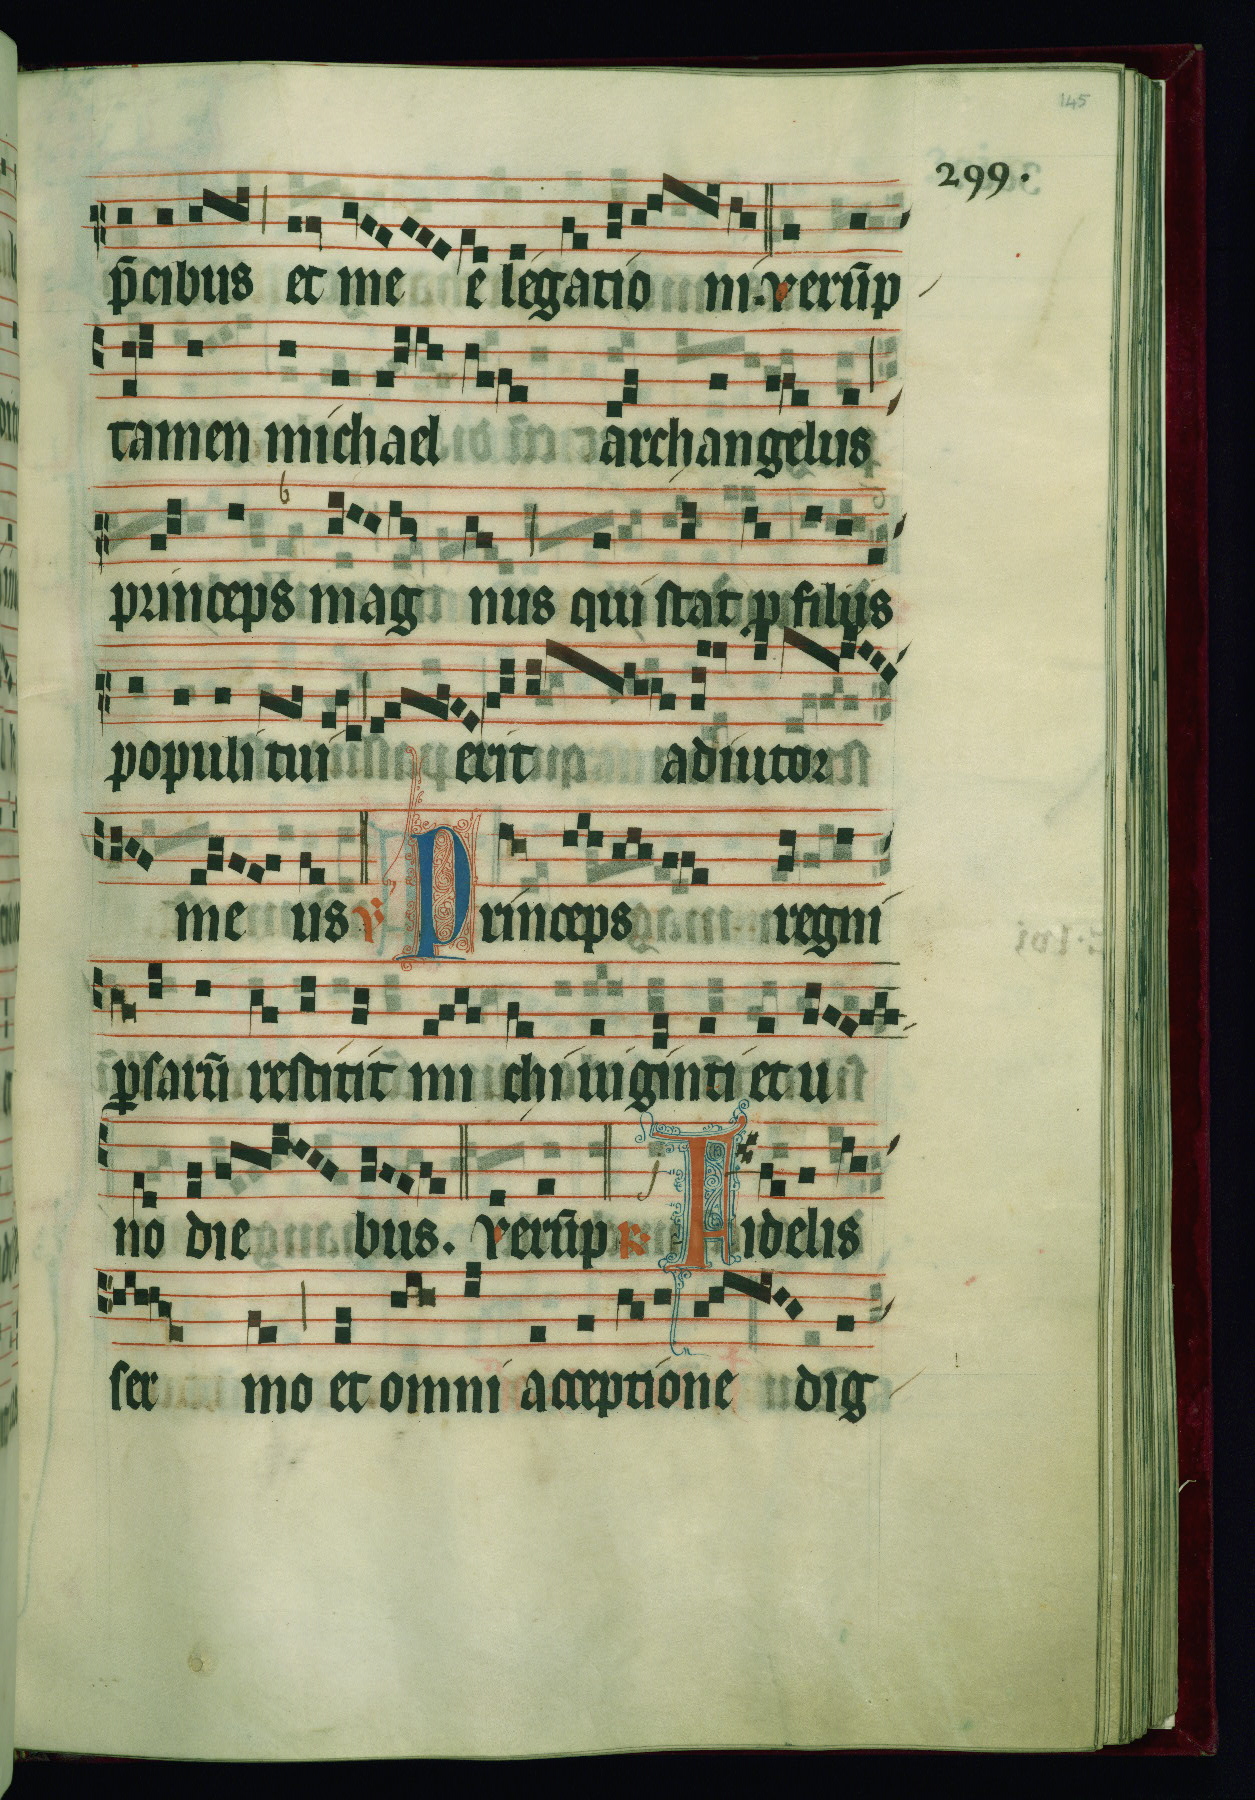 145
299.
p̄cibus et me e legatio ni. verū p
tamen michael archangelus
princeps mag nus qui stat ꝓ filijs
populi tui erit adiutor
me us ℣ Princeps regni
ꝑsarū restitit mi chi uiginti et u
no die bus. Verū p ℟ Fidelis
ser mo et omni acceptione dig